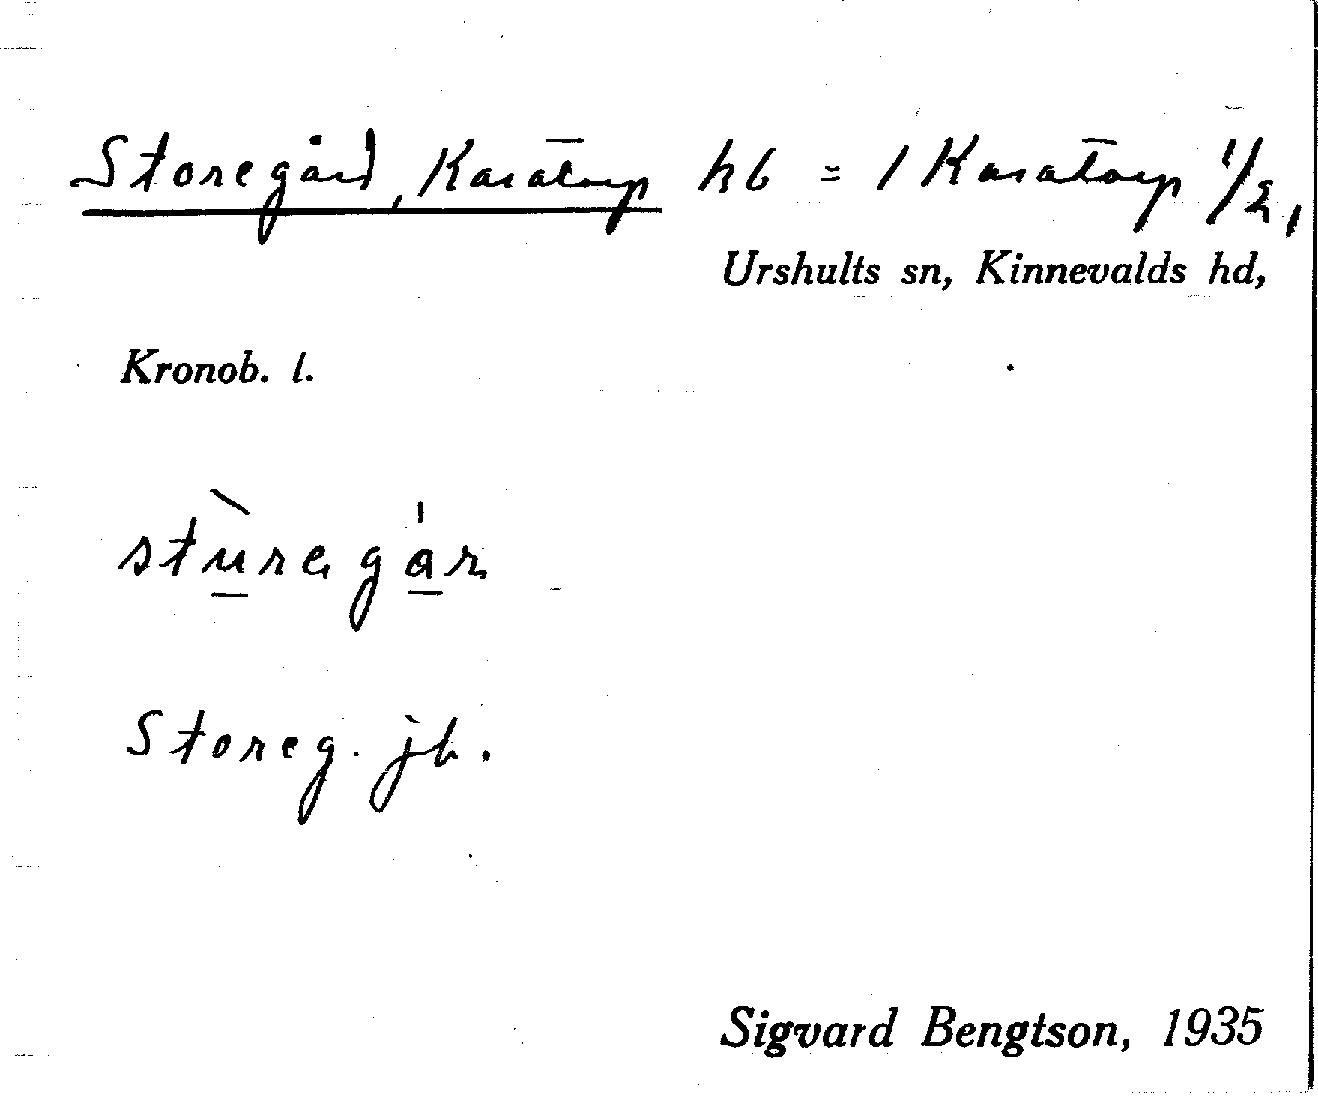 Storegård, Kasatorp hb = 1 Kasatorp 1/2,
Urshults sn, Kinnevalds hd,
Kronob. l.
stùregár
Storeg. jb.
Sigvard Bengtson, 1935